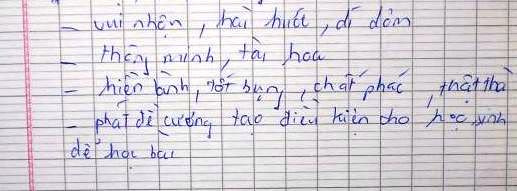 - vui nhộn, hài hước, dí dỏm
- thông minh, tài hoa
- hiền lành, tốt bụng, chất phác, thật thà
- phát đề cương tạo điều kiện cho học sinh
dễ học bài